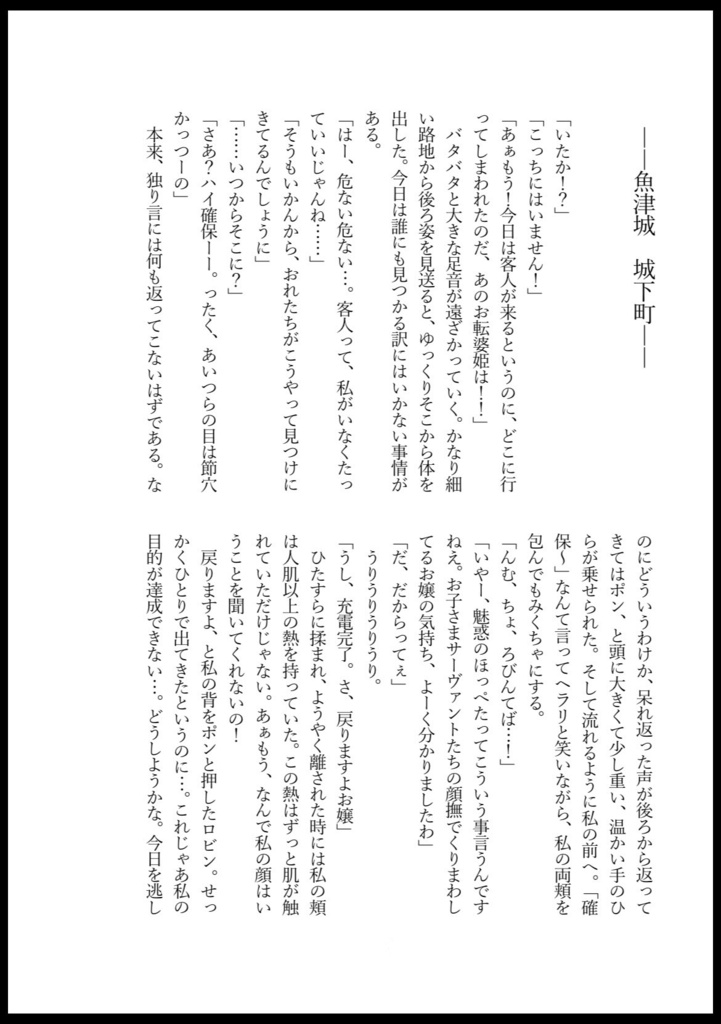 ――魚津城　城下町――
「いたか！？」
「こっちにはいません！」
「あぁもう！今日は客人が来るというのに、どこに行
ってしまわれたのだ、あのお転婆姫は！！」
　バタバタと大きな足音が遠ざかっていく。かなり細
い路地から後ろ姿を見送ると、ゆっくりそこから体を
出した。今日は誰にも見つかる訳にはいかない事情が
ある。
「はー、危ない危ない…。客人って、私がいなくたっ
ていいじゃんね……」
「そうもいかんから、おれたちがこうやって見つけに
きてるんでしょうに」
「……いつからそこに？」
「さあ？ハイ確保ーー。ったく、あいつらの目は節穴
かっつーの」
　本来、独り言には何も返ってこないはずである。な
のにどういうわけか、呆れ返った声が後ろから返って
きてはポン、と頭に大きくて少し重い、温かい手のひ
らが乗せられた。そして流れるように私の前へ。「確
保～」なんて言ってヘラリと笑いながら、私の両頬を
包んでもみくちゃにする。
「んむ、ちょ、ろびんてば…！」
「いやー、魅惑のほっぺたってこういう事言うんです
ねえ。お子さまサーヴァントたちの顔撫でくりまわし
てるお嬢の気持ち、よーく分かりましたわ」
「だ、だからってぇ」
　うりうりうりうり。
「うし、充電完了。さ、戻りますよお嬢」
　ひたすらに揉まれ、ようやく離された時には私の頬
は人肌以上の熱を持っていた。この熱はずっと肌が触
れていただけじゃない。あぁもう、なんで私の顔はい
うことを聞いてくれないの！
　戻りますよ、と私の背をポンと押したロビン。せっ
かくひとりで出てきたというのに…。これじゃあ私の
目的が達成できない…。どうしようかな。今日を逃し